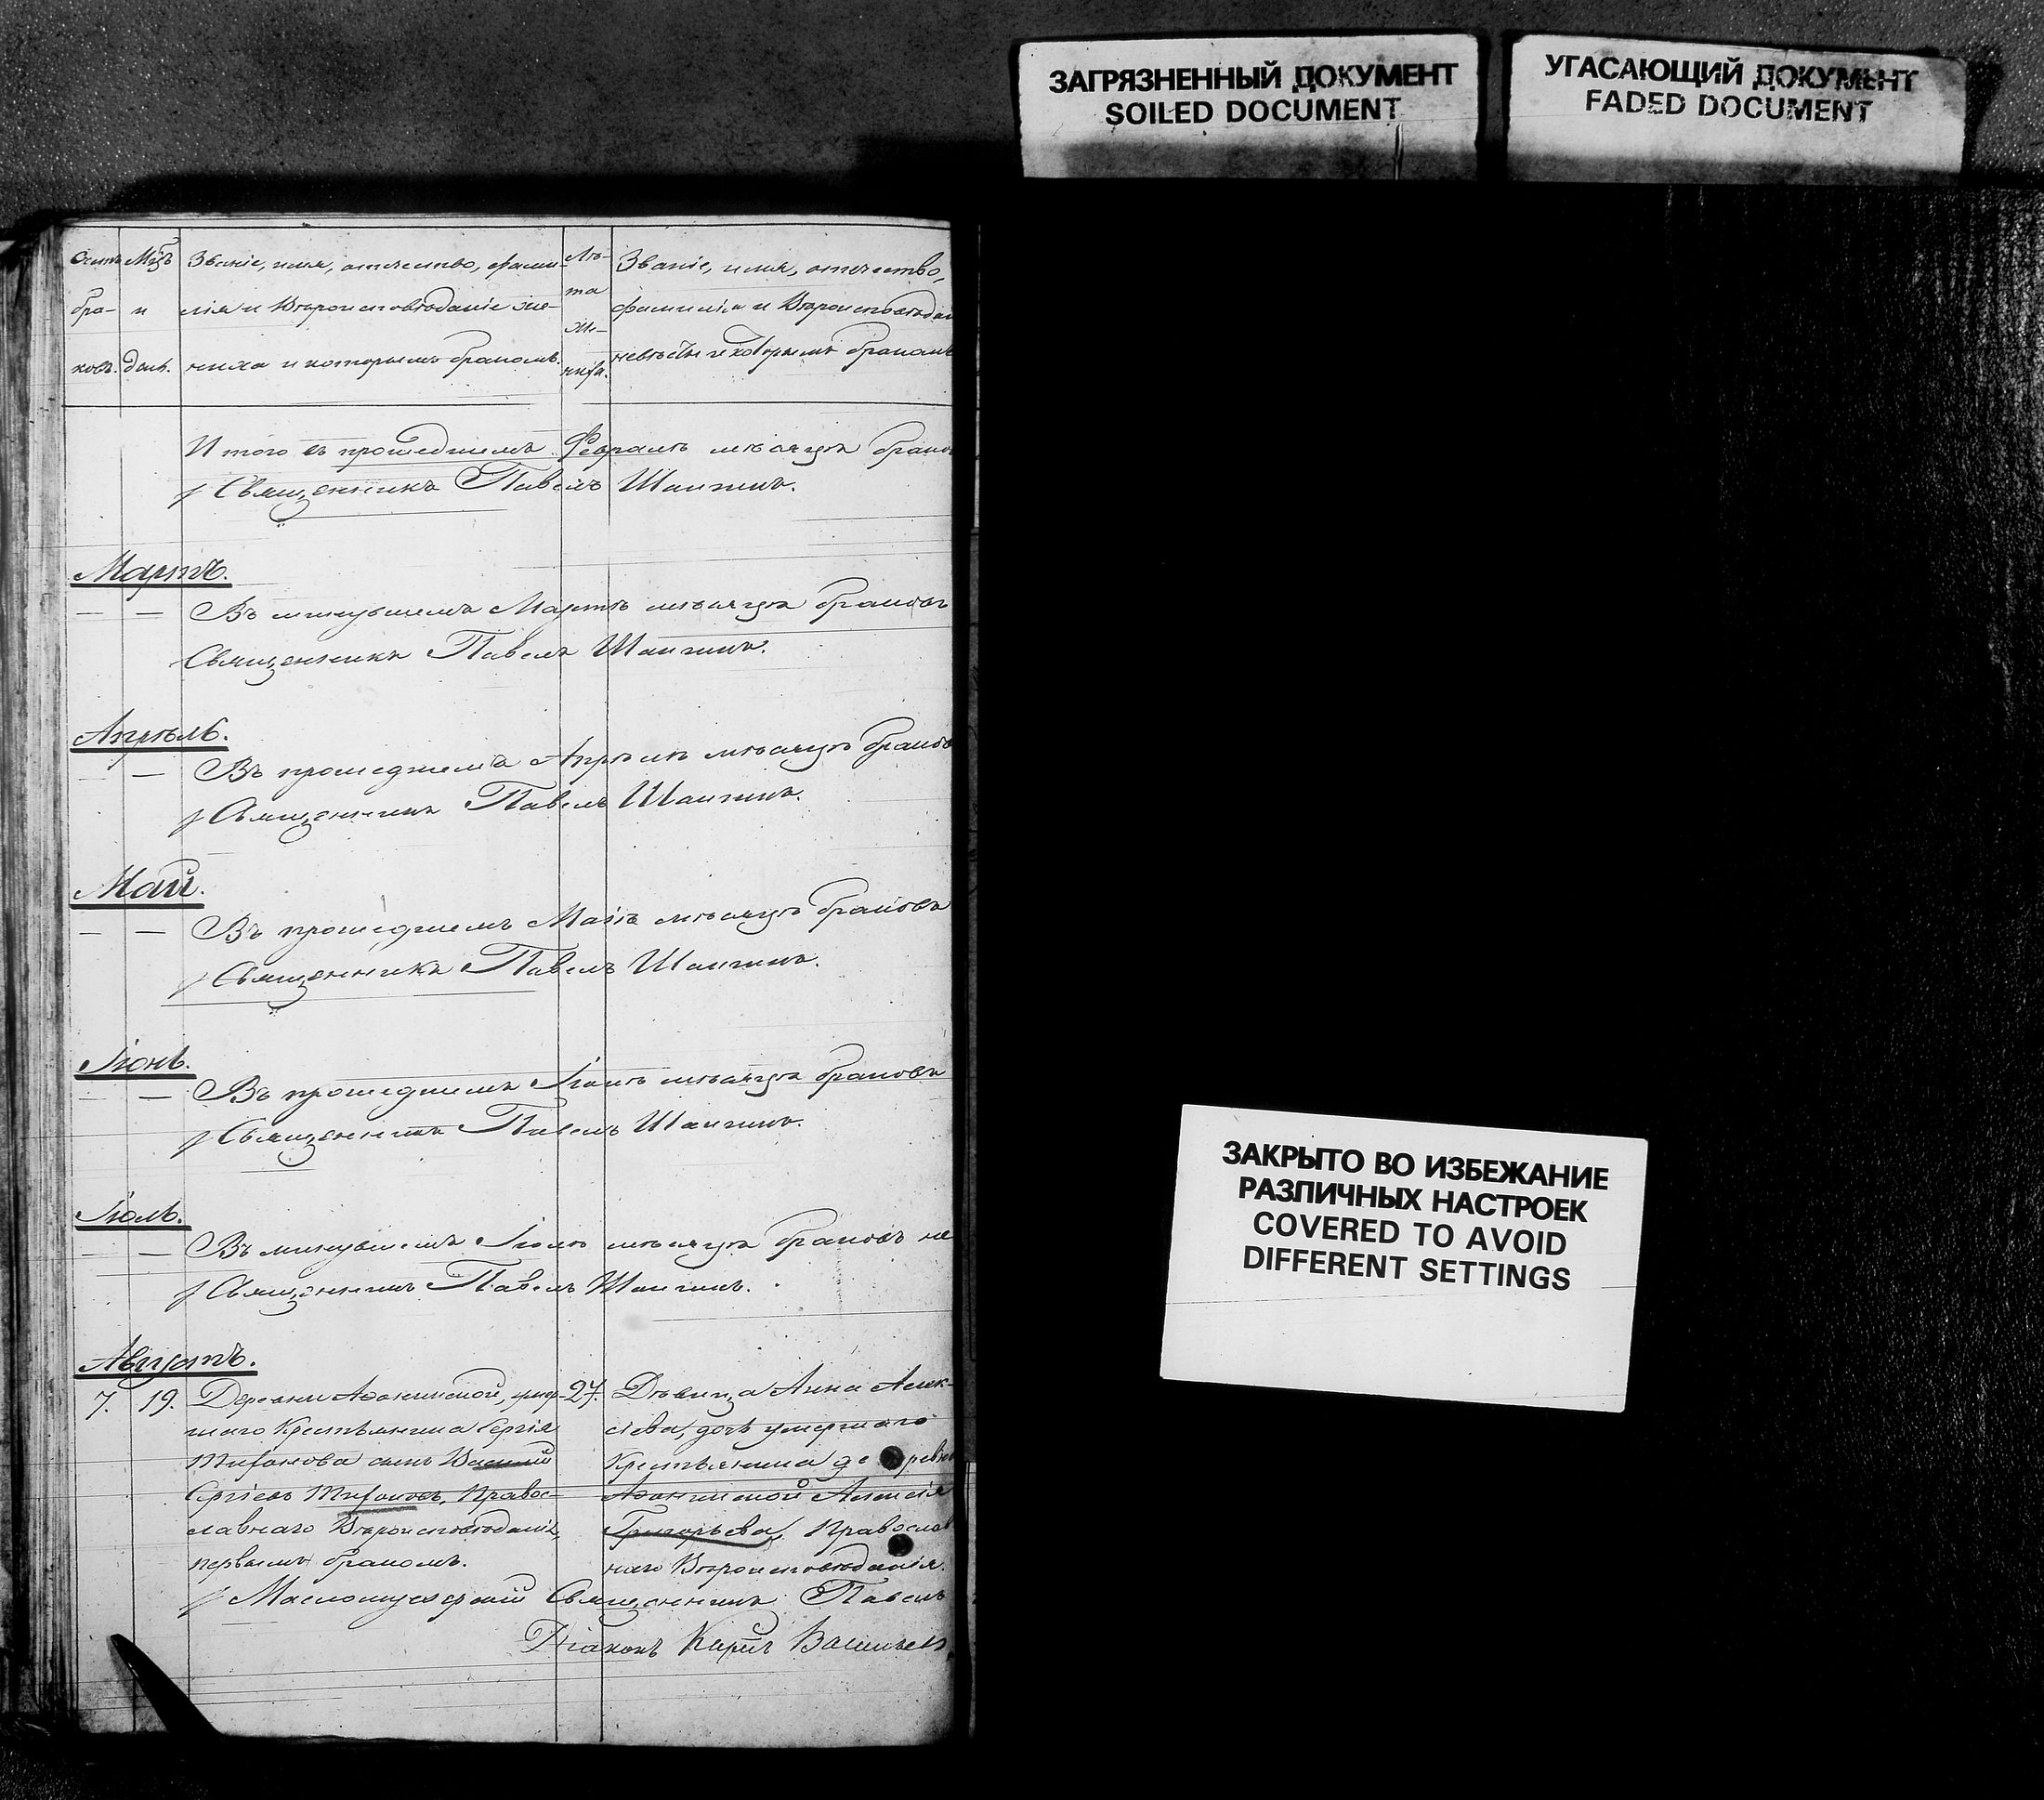 ЗАГРЯЗНЕННЫЙ ДОКУМЕНТ
SOILED DOCUMENT
УГАСАЮЩИЙ ДОКУМЕНТ
FADED DOCUMENT
Счетъ
бра-
ковъ.
Мцъ
и
день.
Званіе, имя, отечество, фами-
лія и Вѣроисповѣданіе же-
ниха и которымъ бракомъ.
Лѣ-
та
же-
ниха.
Званіе, имя, отечество,
фамилія и Вѣроисповѣдан
невѣсты и которымъ бракомъ
Итого въ прошедшемъ Февралѣ мѣсяцѣ брако
Священникъ Павелъ
Мартъ.
— — Въ минувшемъ Мартѣ мѣсяцѣ браковъ
Священникъ Павелъ
Апрѣль.
— — Въ прошедшемъ Апрѣлѣ мѣсяцѣ браковъ
Священникъ Павелъ
Май.
— — Въ прошедшемъ Маіѣ мѣсяцѣ браковъ
Священникъ Павелъ
Іюнь.
— — Въ прошедшемъ Іюнѣ мѣсяцѣ браковъ
Священникъ Павелъ
Іюль.
— — Въ минувшемъ Іюлѣ мѣсяцѣ браковъ не
Священникъ Павелъ
Августъ.
7. 19.
Деревни умер-
шаго Крестьянина Сергія
сынъ Василій
Сергіевъ Правос-
лавнаго Вѣроисповѣданія,
первымъ бракомъ.
27.
Дѣвица Анна Алек-
сіева, дочь умершаго
Крестьянина деревни
Алексія
Григорьева, Православ
наго Вѣроисповѣданія.
Священникъ Павелъ
Діаконъ Васильев
ЗАКРЫТО ВО ИЗБЕЖАНИЕ
РАЗЛИЧНЫХ НАСТРОЕК
COVERED TO AVOID
DIFFERENT SETTINGS